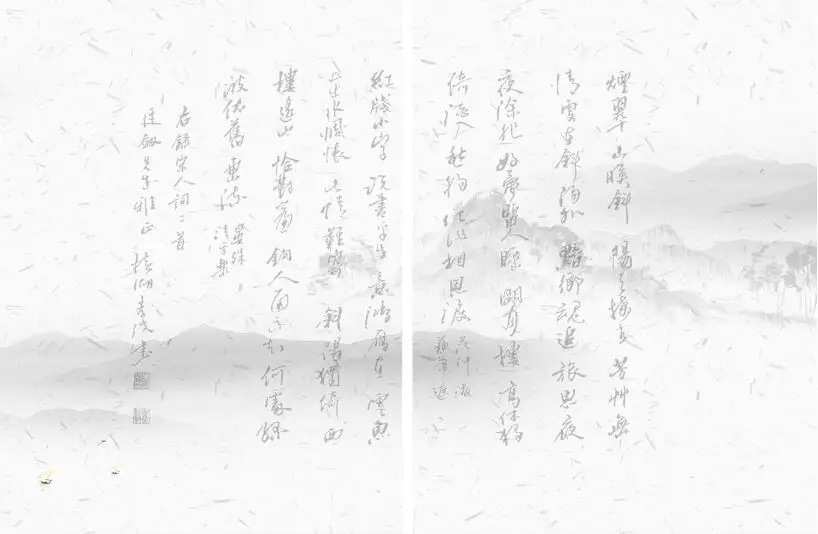 煙翠山暎斜陽天接水芳艸無
情更在斜陽外黯鄉魂追旅思夜
夜除非好夢留人睡明月樓高休獨
倚酒入愁腸化作相思淚
范仲淹
蘇幕遮
紅牋小字說盡平生意鴻雁在雲魚
在水惆悵此情難寄斜陽獨倚西
樓遙山恰對簾鉤人面不知何處綠
波依舊東流
晏殊
清平樂
右錄宋人詞二首
先生雅正